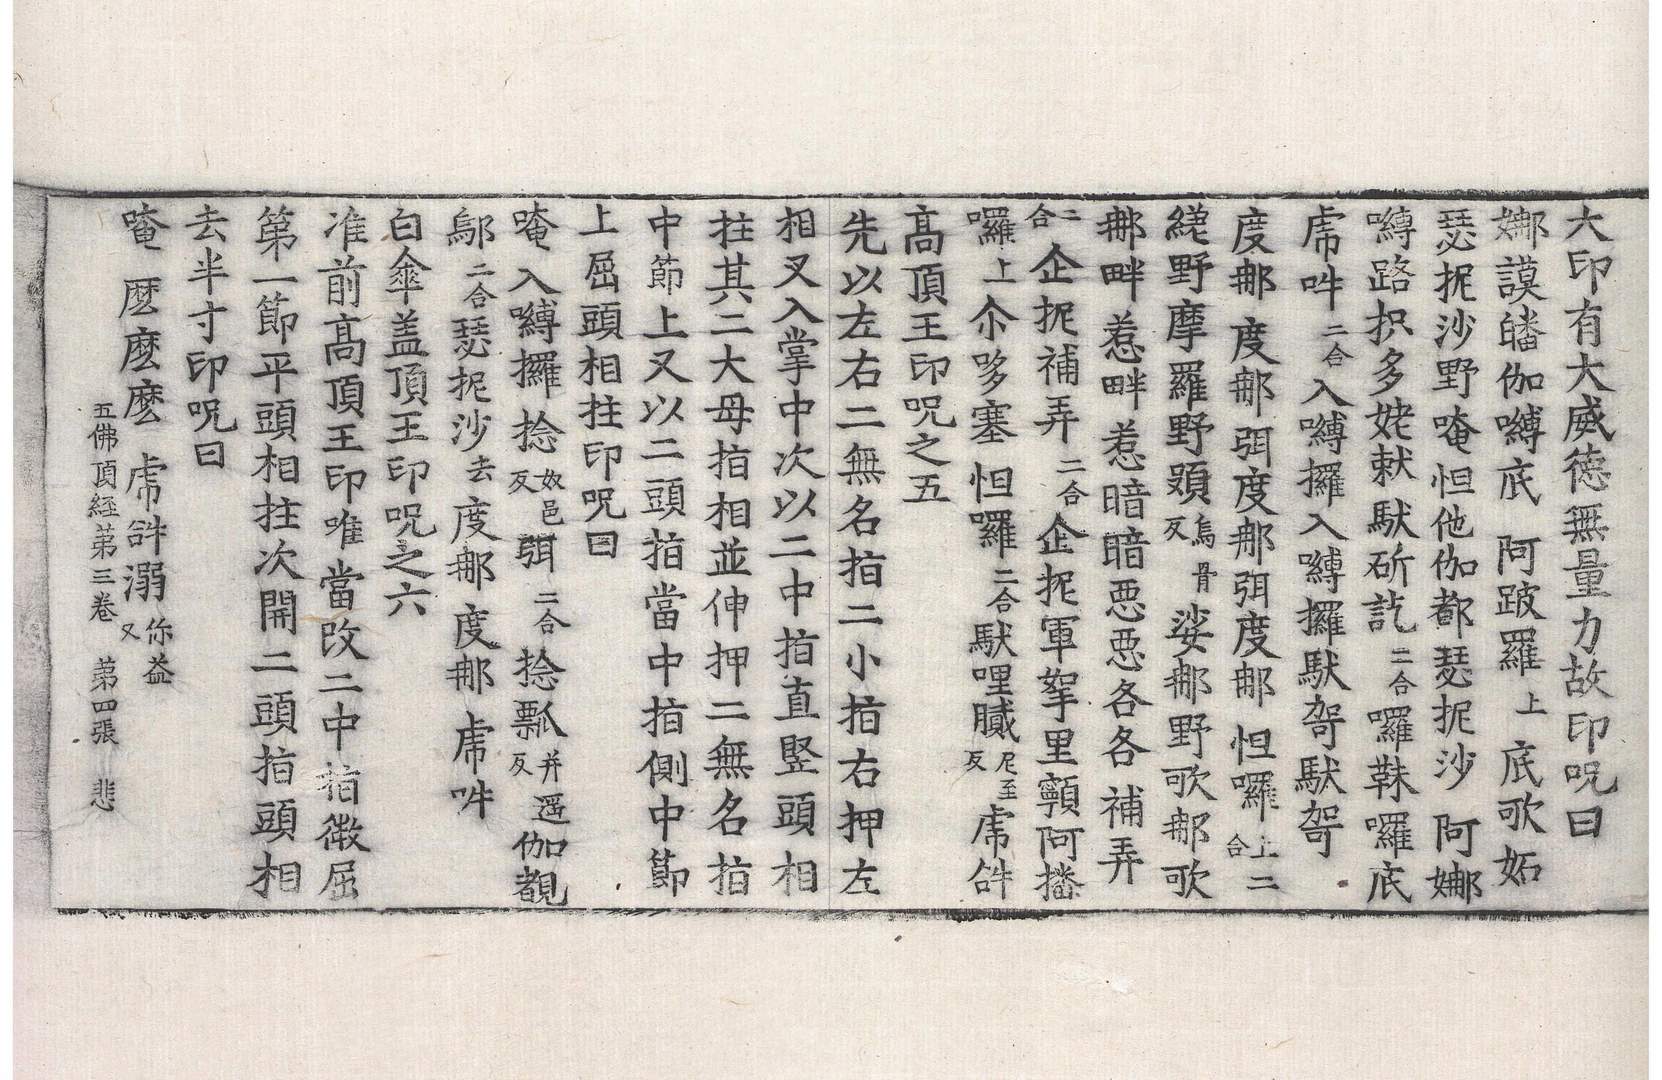 大印有大威德無量力故印呪曰
娜謨皤伽嚩底 阿跛羅上 底歌妬
瑟抳沙野唵怛他伽都瑟抳沙 阿娜
嚩路抧多姥𣤶䭾斫訖二合囉靺囉底
虎𤙖二合入嚩攞入嚩攞䭾哿䭾哿
度郍度郍弭度郍弭度郍 怛囉上二合
縒野摩羅野頞烏骨反娑郍野歌郍歌
郍畔惹畔惹暗暗惡惡各各 補弄
二合企抳補弄二合企抳軍拏里顐阿播
囉上尒哆塞 怛囉二合䭾哩膩尼至反虎𤙖
高頂王印呪之五
先以左右二無名指二小指右押左
相叉入掌中次以二中指直竪頭相
拄其二大母指相並伸押二無名指
中節上又以二頭指當中指側中節
上屈頭相拄印呪曰
唵 入嚩攞 捻奴邑反弭二合捻瓢并遥反伽覩
鄔二合瑟抳沙去度郍度郍 虎𤙖
白傘盖頂王印呪之六
准前高頂王印唯當改二中指微屈
第一節平頭相拄次開二頭指頭相
去半寸印呪曰
唵 麽麽麽 虎𤙖溺你益反
五佛頂經第三卷 第四張 悲